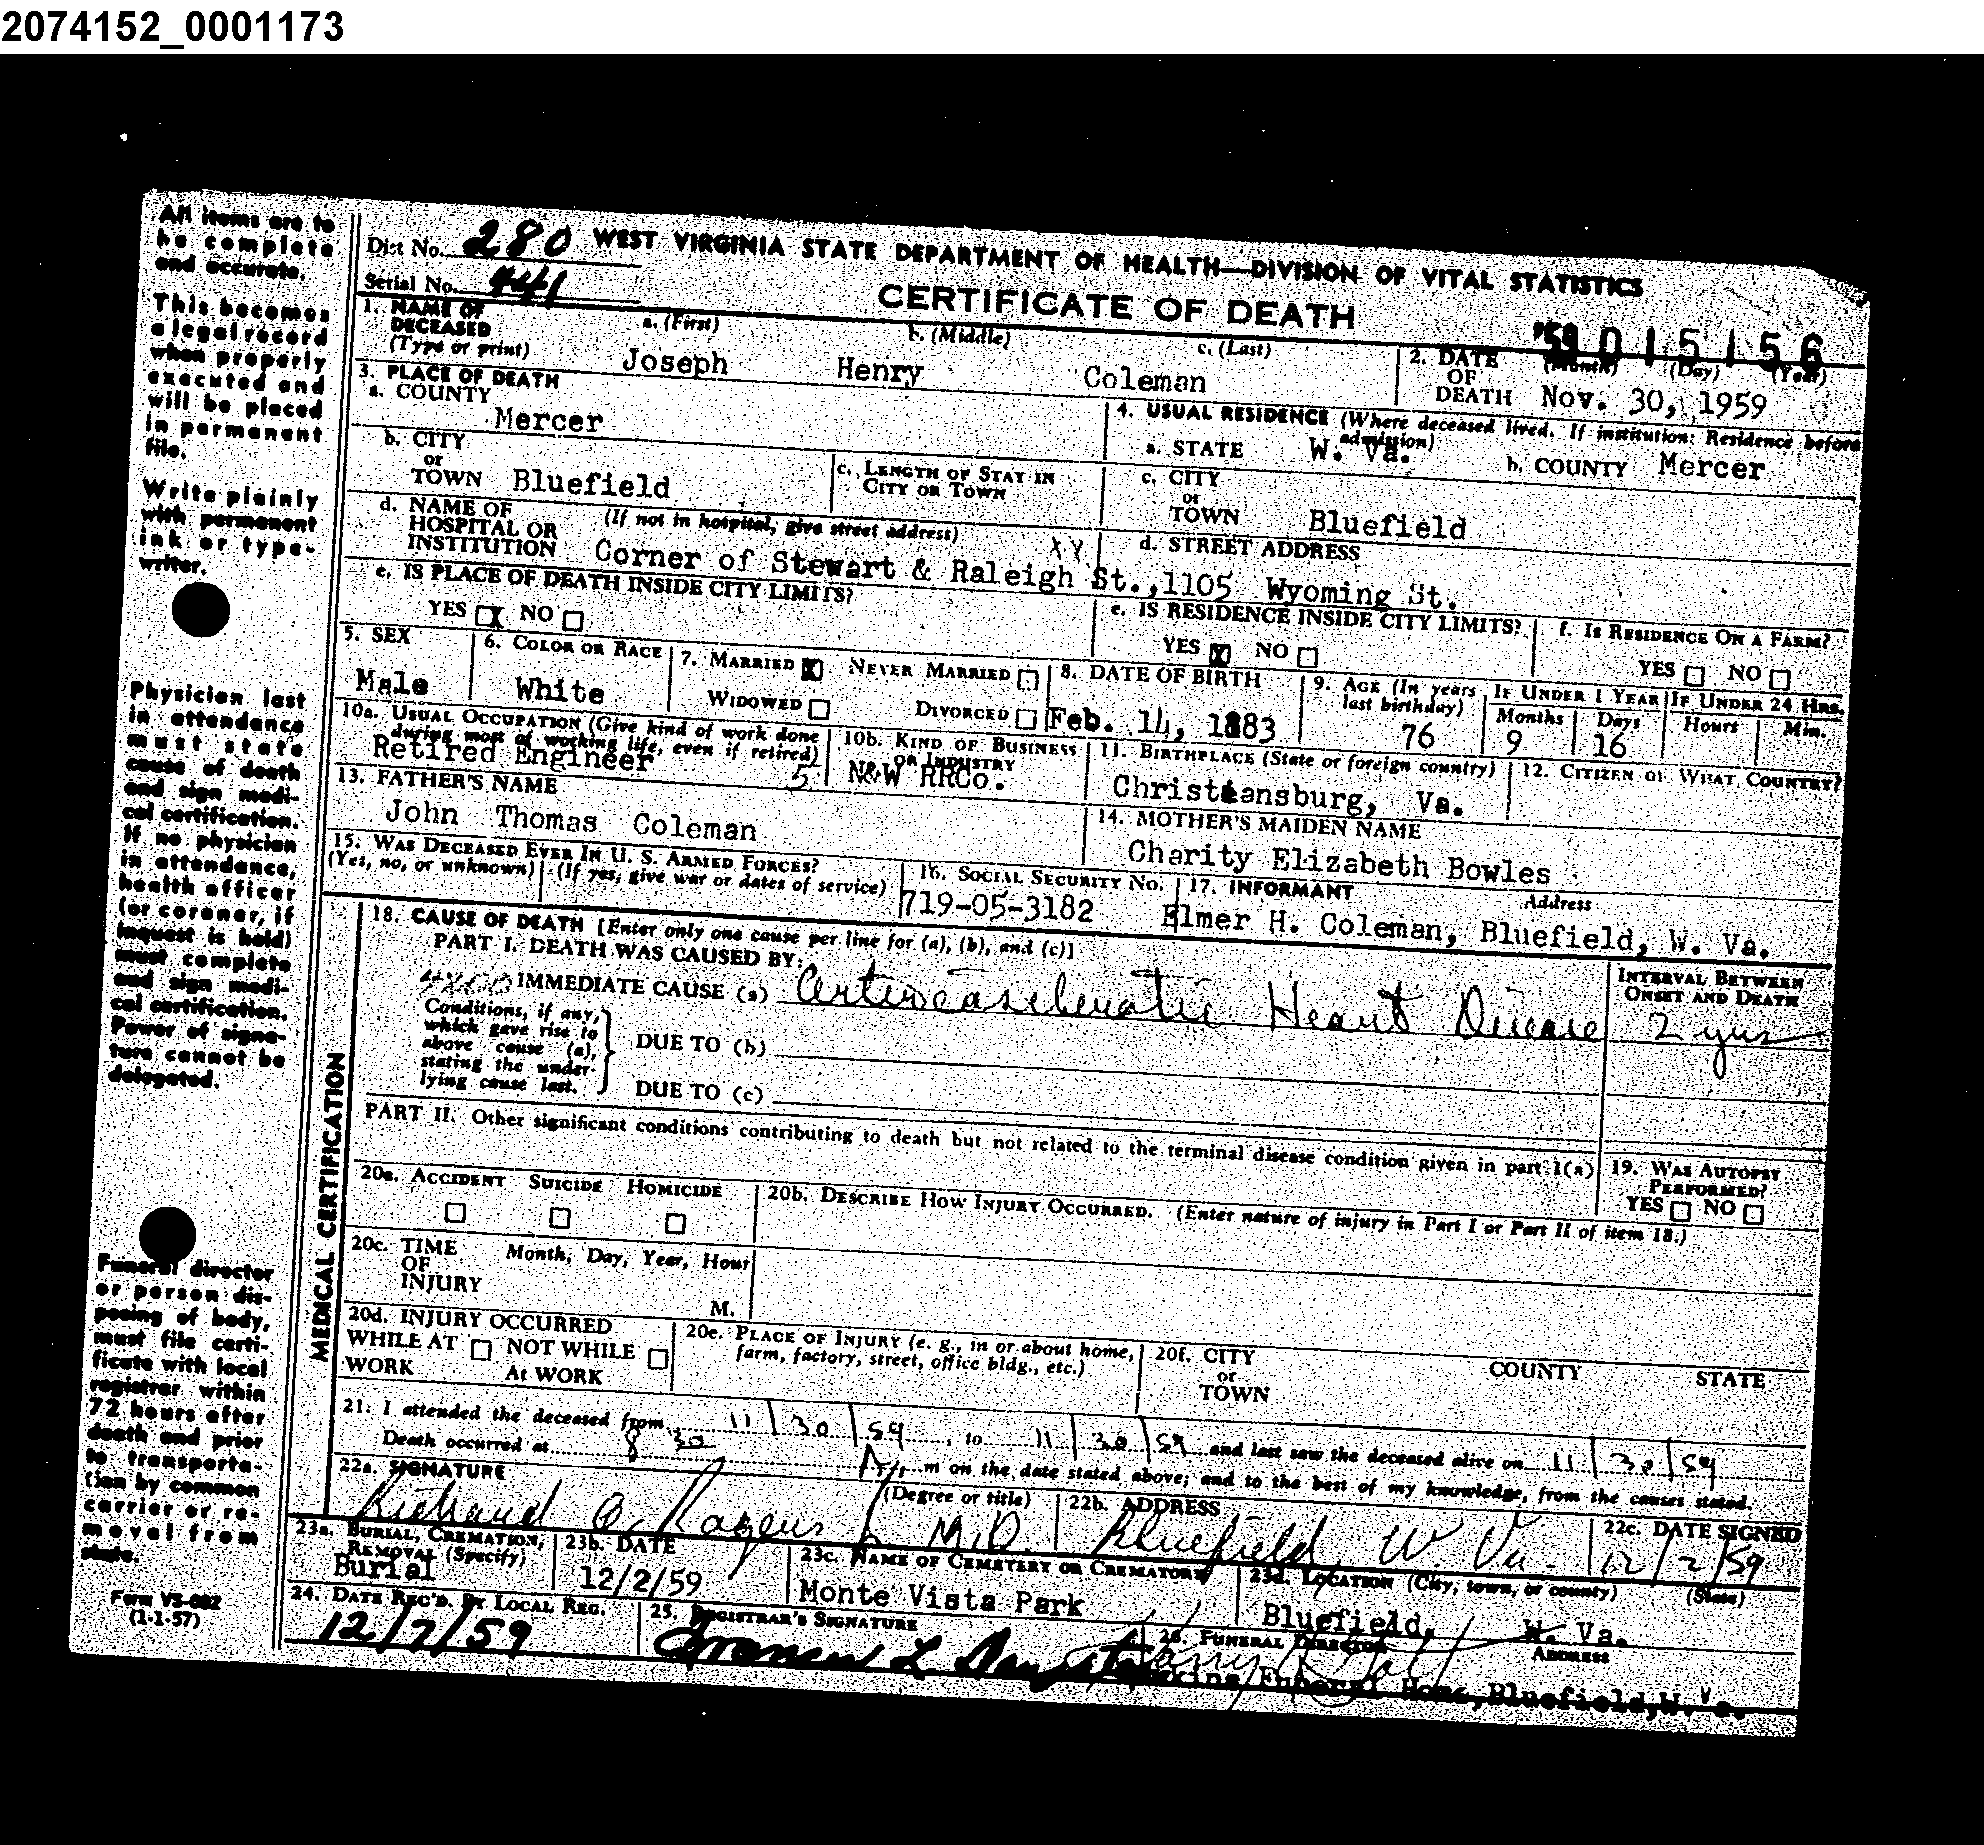 2074152_0001173
All items are to be complete and accurate.
This becomes a legal record when properly executed and will be placed in permanent file.
Write plainly with permanent ink or typewriter.
Physician last in attendance must state cause of death and sign medical certification. If no physician in attendance, health officer (or coroner, if inquest is held) must complete and sign medical certification. Power of signature cannot be delegated.
Funeral director or person disposing of body, must file certificate with local registrar within 72 hours after death and prior to transportation by common carrier or removal from state.
Form VS-002
(1-1-57)
Dist No. 280 WEST VIRGINIA STATE DEPARTMENT OF HEALTH—DIVISION OF VITAL STATISTICS
Serial No. 441 CERTIFICATE OF DEATH
59 015156
1. NAME OF DECEASED (Type or print) a. (First) b. (Middle) c. (Last)
Joseph Henry Coleman
2. DATE OF DEATH (Month) (Day) (Year)
Nov. 30, 1959
3. PLACE OF DEATH
a. COUNTY Mercer
4. USUAL RESIDENCE (Where deceased lived. If institution: Residence before admission)
a. STATE W. Va. b. COUNTY Mercer
b. CITY or TOWN Bluefield
c. LENGTH OF STAY IN CITY OR TOWN
c. CITY or TOWN Bluefield
d. NAME OF HOSPITAL OR INSTITUTION (If not in hospital, give street address)
Corner of Stewart & Raleigh St.,
d. STREET ADDRESS
1105 Wyoming St.
e. IS PLACE OF DEATH INSIDE CITY LIMITS?
YES X NO
e. IS RESIDENCE INSIDE CITY LIMITS?
YES X NO
f. IS RESIDENCE ON A FARM?
YES NO
5. SEX Male
6. COLOR OR RACE White
7. MARRIED X NEVER MARRIED
WIDOWED DIVORCED
8. DATE OF BIRTH Feb. 14, 1883
9. AGE (In years last birthday) 76
IF UNDER 1 YEAR Months 9 Days 16
IF UNDER 24 HRS. Hours Min.
10a. USUAL OCCUPATION (Give kind of work done during most of working life, even if retired)
Retired Engineer 5
10b. KIND OF BUSINESS OR INDUSTRY
N&W RRCo.
11. BIRTHPLACE (State or foreign country)
Christiansburg, Va.
12. CITIZEN OF WHAT COUNTRY?
13. FATHER'S NAME
John Thomas Coleman
14. MOTHER'S MAIDEN NAME
Charity Elizabeth Bowles
15. WAS DECEASED EVER IN U. S. ARMED FORCES?
(Yes, no, or unknown) (If yes, give war or dates of service)
16. SOCIAL SECURITY NO.
719-05-3182
17. INFORMANT Address
Elmer H. Coleman, Bluefield, W. Va.
MEDICAL CERTIFICATION
18. CAUSE OF DEATH [Enter only one cause per line for (a), (b), and (c)]
PART I. DEATH WAS CAUSED BY:
INTERVAL BETWEEN ONSET AND DEATH
IMMEDIATE CAUSE (a) Arteriosclerotic Heart Disease 2 yrs
Conditions, if any, which gave rise to above cause (a), stating the underlying cause last.
DUE TO (b)
DUE TO (c)
PART II. Other significant conditions contributing to death but not related to the terminal disease condition given in part I(a)
19. WAS AUTOPSY PERFORMED?
YES NO
20a. ACCIDENT SUICIDE HOMICIDE
20b. DESCRIBE HOW INJURY OCCURRED. (Enter nature of injury in Part I or Part II of item 18.)
20c. TIME OF INJURY Month, Day, Year, Hour
M.
20d. INJURY OCCURRED
WHILE AT WORK NOT WHILE At WORK
20e. PLACE OF INJURY (e. g., in or about home, farm, factory, street, office bldg., etc.)
20f. CITY or TOWN COUNTY STATE
21. I attended the deceased from 11/30/59, to 11/30/59 and last saw the deceased alive on 11/30/59
Death occurred at 8 30 A m on the date stated above; and to the best of my knowledge, from the causes stated.
22a. SIGNATURE (Degree or title)
Richard O. Rogers Jr M.D.
22b. ADDRESS
Bluefield W. Va.
22c. DATE SIGNED
12/2/59
23a. BURIAL, CREMATION, REMOVAL (Specify)
Burial
23b. DATE
12/2/59
23c. NAME OF CEMETERY OR CREMATORY
Monte Vista Park
23d. LOCATION (City, town, or county) (State)
Bluefield, W. Va.
24. DATE REC'D. BY LOCAL REG.
12/7/59
25. REGISTRAR'S SIGNATURE
26. FUNERAL DIRECTOR ADDRESS
Funeral Home, Bluefield, W. Va.